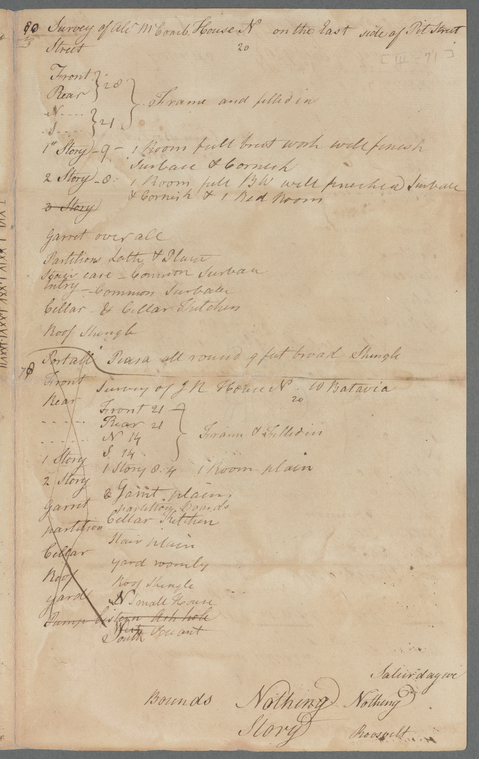 80 Survey of Alex McComb House N on the East side of Pit Street
20
Street
[III-71]
Front
Rear } 28
N....
S.... } 21 } Frame and filled in
1st Story - 9 - 1 Room full brest work well finish
Surbace & Cornish
2 Story - 8 - 1 Room full BW well finished Surbace
& Cornish & 1 Bed Room
3 Story
Garret over all
Partitions Lath &
Stair case - Common Surbace
Entry - Common Surbace
Cellar - & Cellar Kitchen
Roof Shingle
Portall Piasa all round 9 feet broad Shingle
78
Front Survey of J R House N 10 Batavia
20
Rear Front 21
Rear 21
N 14
S. 14 } Frame & Filled in
1 Story 1 Story 8.4 1 Room plain
2 Story 2 Garrit plain
Garret partition boards
partition Cellar Kitchen
Stair plain
Cellar yard roomly
Roof Roof Shingle
yard N Small House
Pump Cistern Ash hole
West
South Vacant
Saturday we
Bounds Nothing Nothing
Story Roosevelt